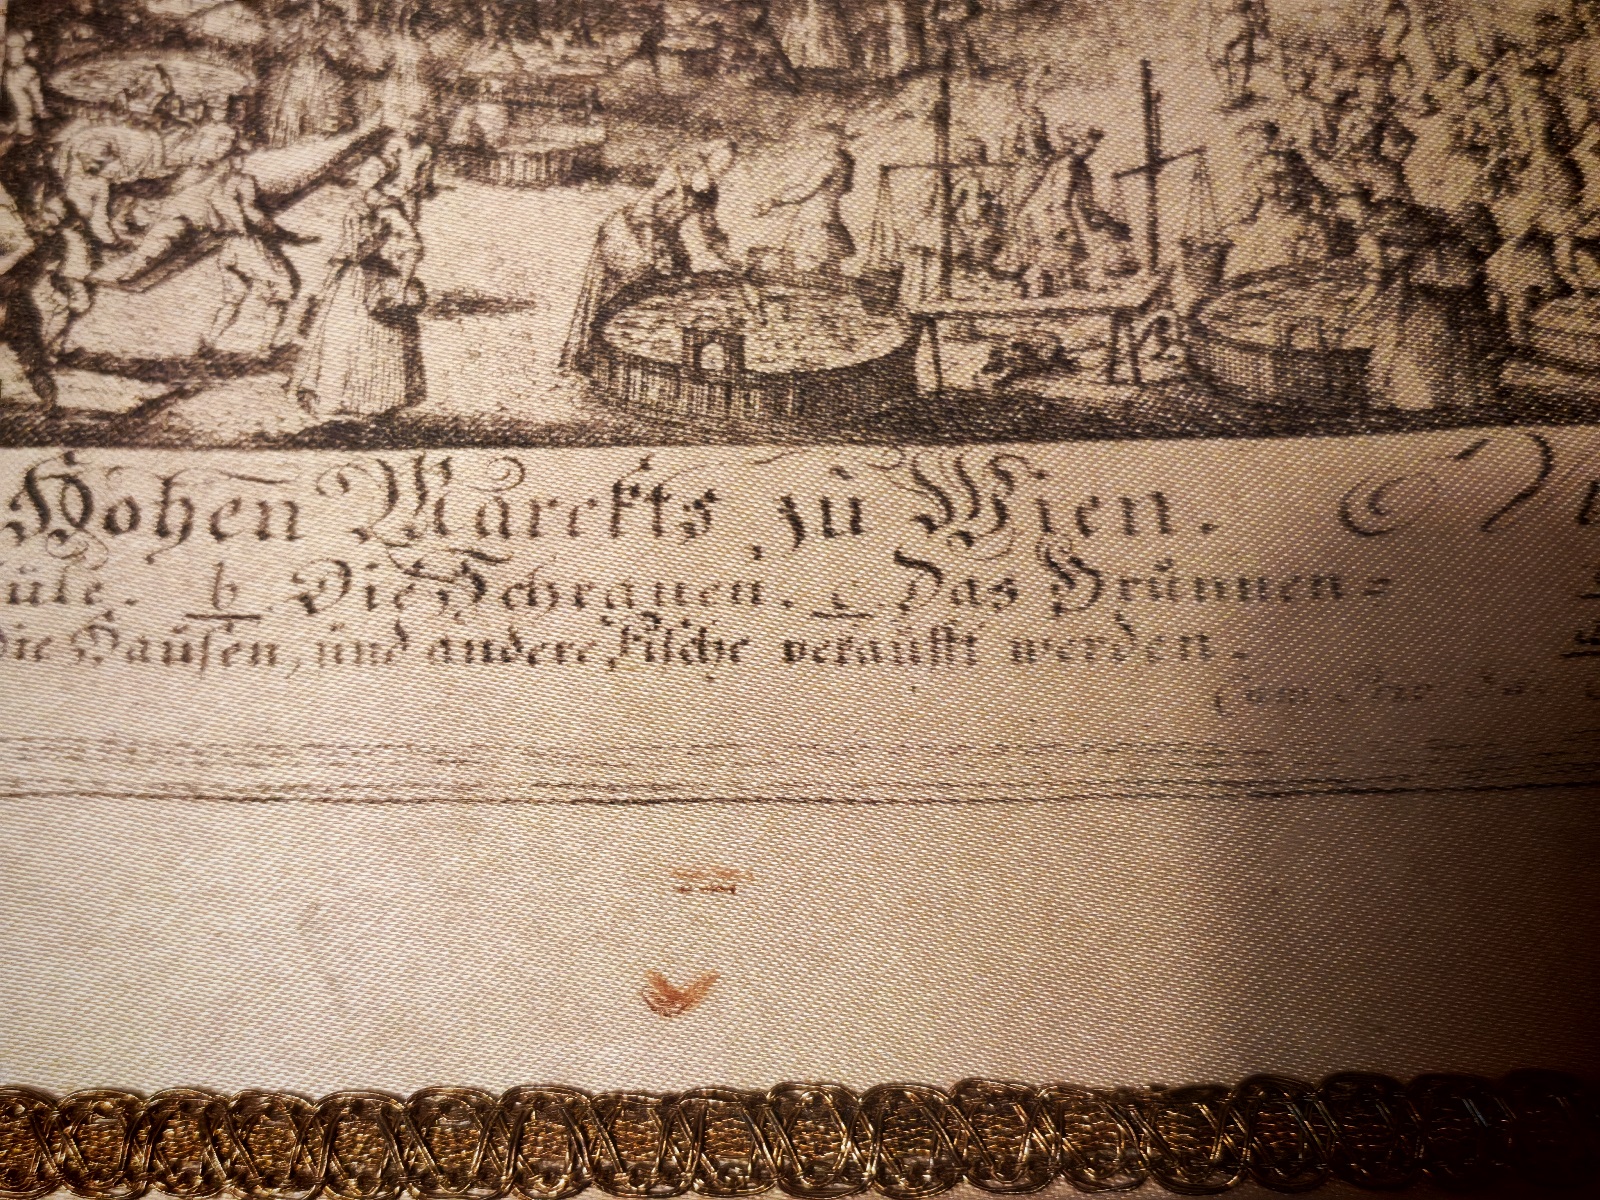 Hohen Marckts zů Wien.
b. Die Schrañen. c. Das Brůnnen=
Die Hausen, und andere Fische verkaufft werden.
Cum Priv.